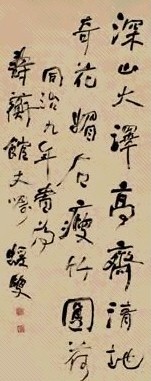 深山大澤高齋清地
奇花媚石瘦竹圓荷
同治九年書為
壽蘅館丈 蝯叟